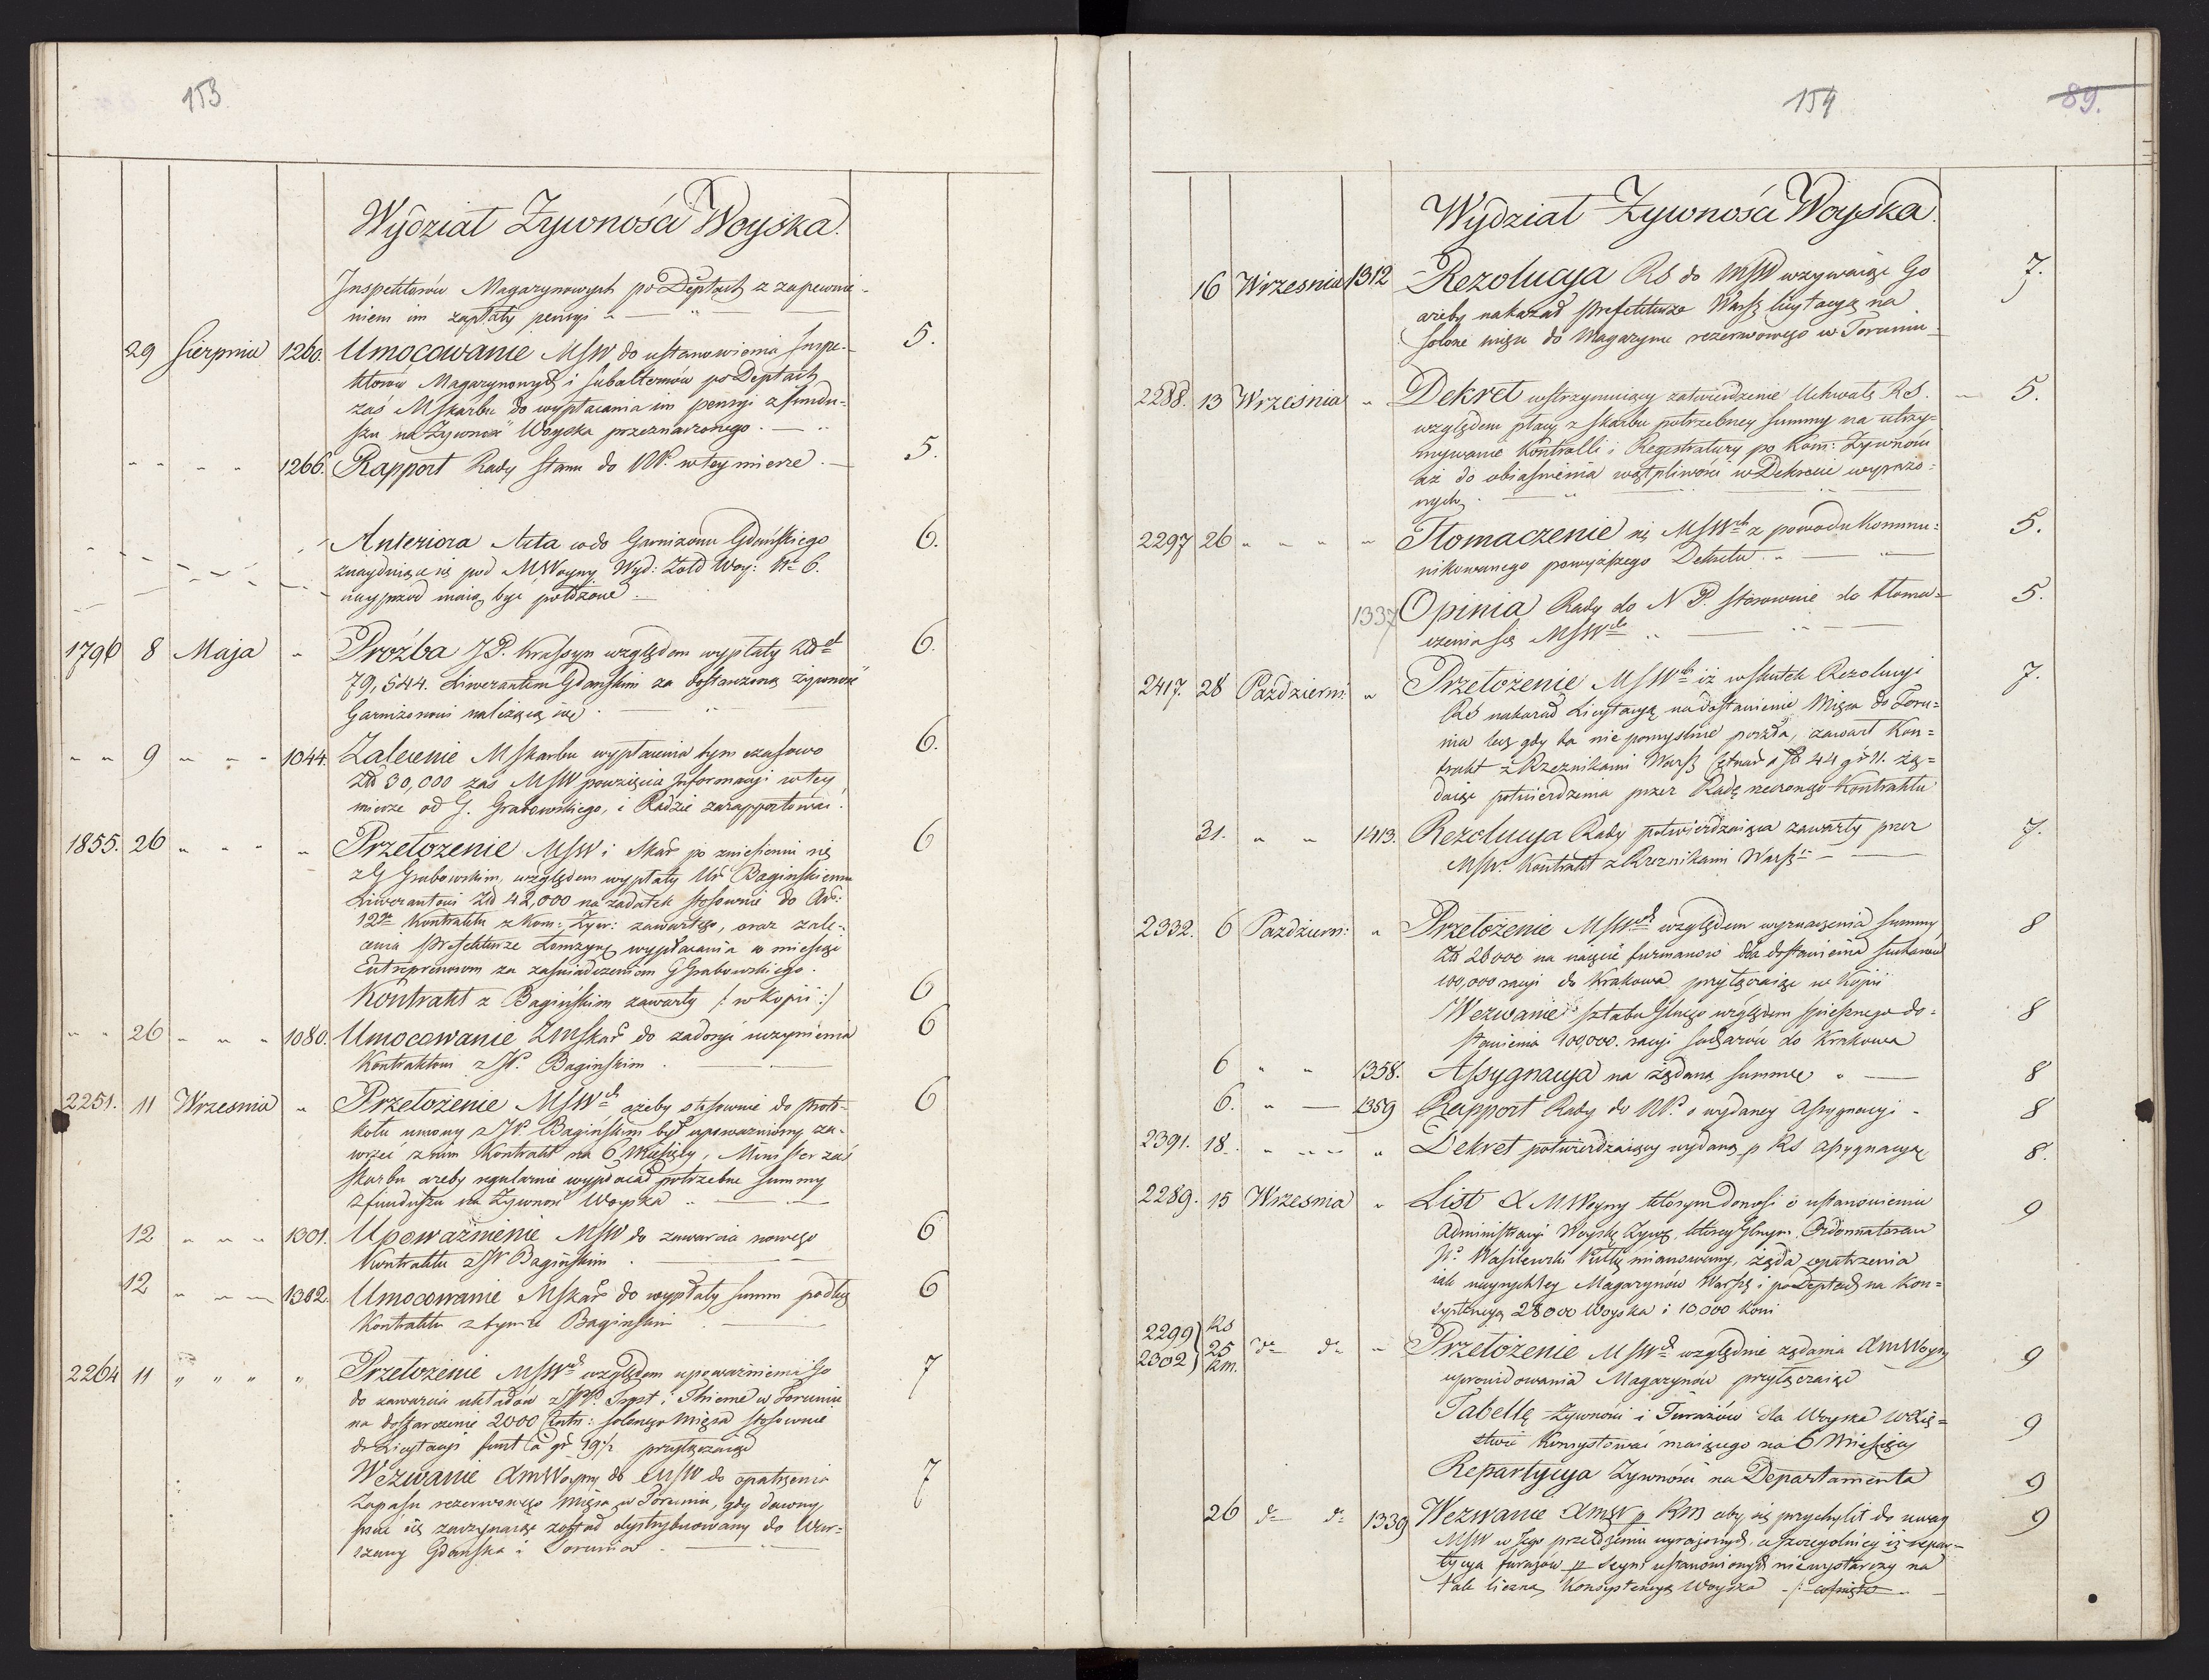 153
Wydział Zywności Woyska.
Inspektorów Magazynowych po Deptach z zapewnie-
niem im zapłaty pensyi „ — „ —
29 Sierpnia 1260. Umocowanie MSW do ustanowienia Inspe- 5.
ktorów Magazynowych i subalternów po Deptach
zaś MSkarbu do wypłacania im pensyi z fundu-
szu na Zywność Woyska przeznaczonego. — „
„ „ „ „ 1266. Rapport Rady Stanu do NP. w tey mierze. — 5.
Anteriora Akta co do Garnizonu Gdańskiego 6.
znayduiące się pod MWoyny Wyd: Zołd Woy: No 6.
nayprzod maią być położone. —
1796 8 Maja „ Prożba JP. Krassyn względem wypłaty Złot 6.
79,544. Liwerantom Gdańskim za dostarczoną żywność
Garnizonowi należącą się. — „ —
„ „ 9 „ „ „ 1044. Zalecenie MSkarbu wypłacenia tym czasowo 6.
Zł 30,000 zaś MSW powzięcia Informacyi w tey
mierze od J. Grabowskiego, i Radzie zarapportować.
1855. 26 „ „ „ „ Przełożenie MSW i Skar po zniesieniu się 6
z G Grabowskim, względem wypłaty Ur Baginskiemu
Liwerantowi Zł 42,000 na zadatek stosownie do Art:
12go Kontraktu z Kom: Zyw: zawartego, oraz zale-
cenia Prefekturze Łomzyn wypłacania co miesiąc
Entreprenerom za zaświadczeniem G Grabowskiego.
Kontrakt z Bagińskim zawarty /: w Kopii :/ 6
„ „ 26 „ „ „ 1080. Umocowanie ZMSkar do zadosyć uczynienia 6
Kontraktowi z JP. Baginskim. — —
2251. 11 Wrzesnia „ Przełożenie MSWch ażeby stosownie do proto- 6
kołu umowy z JP. Bagińskim był upoważniony za-
wrzeć z nim Kontrakt na 6 Miesięcy, Minister zaś
Skarbu ażeby regularnie wypłacał potrzebne summy
z funduszu na Zywność Woyska „ — —
12 „ „ „ 1301. Upoważnienie MSW do zawarcia nowego 6
Kontraktu z JP Bagińskim. — —
12 „ „ „ 1302. Umocowanie MSkar do wypłaty summ podług 6
Kontraktu z tymże Baginskim — —
2264 11 „ „ „ „ Przełożenie MSWch względem upoważnienia Go 7
do zawarcia układów z JPP. i Thieme w Toruniu
na dostarczenie 2000 Cntr: solonego Mięsa stosownie
do Licytacyi funt à gr 19½ przyłączaiąc
Wezwanie XMWoyny do MSW do opatrzenia 7
Zapasu rezerwowego Mięsa w Toruniu, gdy dawny
psuć się zaczynaiąc został dystrybuowany do War-
szawy Gdańska i Torunia. — „
154
89.
Wydział Zywności Woyska.
16 Wrzesnia 1312 Rezolucya RS do MSW wzywaiąc Go 7.
ażeby nakazał Prefekturze Warsz licytacyą na
solone mięso do Magazynu rezerwowego w Toruniu
2288. 13 Wrzesnia „ Dekret wstrzymuiący zatwierdzenie Uchwały RS. — 5.
względem płacy z Skarbu potrzebney summy na utrzy-
mywanie Kontrolli i Registratury po Kom: Zywnosci
aż do obiaśnienia wątpliwosci w Dekrecie wyrażo-
nych. — „ —
2297 26 „ „ „ „ Tłomaczenie się MSWch z powodu Kommu- 5.
nikowanego powyższego Dekretu. „ — „
1337 Opinia Rady do N P. stosownie do tłoma- 5.
czenia się MSWch „ — „ —
2417. 28 Październi „ Przełożenie MSWch iż wskutek Rezolucyi 7.
RS nakazał Licytacyą na dostawienie Mięsa do Toru-
nia lecz gdy ta nie pomyslnie poszła, zawarł Kon-
trakt z Rzeznikami Warsz Cetnar a Zł 44 gr 11. żą-
daiąc potwierdzenia przez Radę rzeczonego Kontraktu
31. „ „ 1413. Rezolucya Rady potwierdzaiąca zawarty przez 7.
MSW. Kontrakt z Rzeznikami Warsz — —
2332. 6 Październ: „ Przełożenie MSWch względem wyznaczenia summy 8
Zł 28000 na naięcie furmanów dla dostawienia sucharów
100,000 racyi do Krakowa przyłączaiąc w Kopii
Wezwanie Sztabu Głnego względem spiesznego do- 8
stawienia 100,000. racyi sucharów do Krakowa
6 „ „ 1358. Assygnacya na żądaną summę „ — 8
6. „ — 1359 Rapport Rady do NP. o wydaney Assygnacyi - 8
2391. 18. „ „ „ „ Dekret potwierdzaiący wydaną p RS assygnacyą 8.
2289. 15 Wrzesnia „ List XMWoyny którym donosi o ustanowieniu 9
Administracyi Woysk Zywn, ktorey Głnym Ordonnatorem
JP. Wasilewski Pułk mianowany, żąda opatrzenia
iak nayrychley Magazynów Warsz i po Deptach na Kon-
systencyą 28000 Woyska i 10,000 Koni
2299 } RS
2302 } 25 Rm. do do „ Przełożenie MSWch względnie żądania XMWoyny 9
uprowidowania Magazynów przyłączaiąc
Tabellę Zywności i Furażów dla Woyska w Xię- 9
stwie Konsystować maiącego na 6 Miesięcy
Repartycya Zywności na Departamenta 9
26 do do 1339 Wezwanie XMW p RM aby się przychylił do uwag 9
MSW w Jego przełożeniu wyrażonych, a szczegolniey iż repar-
tycya furażów p Seym ustanowionych niewystarczy na
tak liczną Konsystencyą Woyska -/: